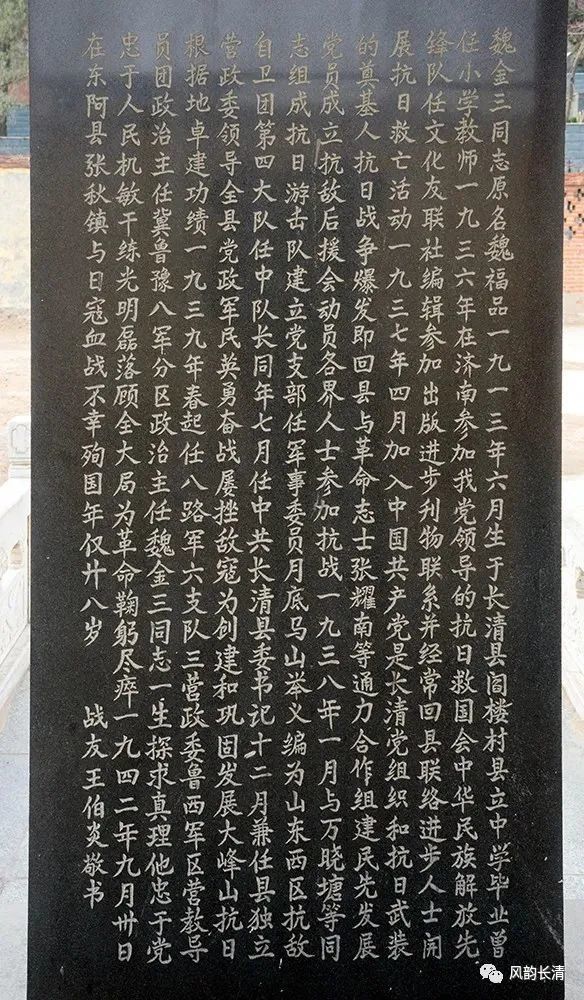 魏金三同志原名魏福品一九一三年六月生于长清县阎楼村县立中学毕业曾
任小学教师一九三六年在济南参加我党领导的抗日救国会中华民族解放先
锋队任文化友联社编辑参加出版进步刊物联系并经常回县联络进步人士开
展抗日救亡活动一九三七年四月加入中国共产党是长清党组织和抗日武装
的奠基人抗日战争爆发即回县与革命志士张耀南等通力合作组建民先发展
党员成立抗敌后援会动员各界人士参加抗战一九三八年一月与万晓塘等同
志组成抗日游击队建立党支部任军事委员月底马山举义编为山东西区抗敌
自卫团第四大队任中队长同年七月任中共长清县委书记十二月兼任县独立
营政委领导全县党政军民英勇奋战屡挫敌寇为创建和巩固发展大峰山抗日
根据地卓建功绩一九三九年春起任八路军六支队三营政委鲁西军区营教导
员团政治主任冀鲁豫八军分区政治主任魏金三同志一生探求真理他忠于党
忠于人民机敏干练光明磊落顾全大局为革命鞠躬尽瘁一九四二年九月卅日
在东阿县张秋镇与日寇血战不幸殉国年仅廿八岁 战友王伯炎敬书
风韵长清